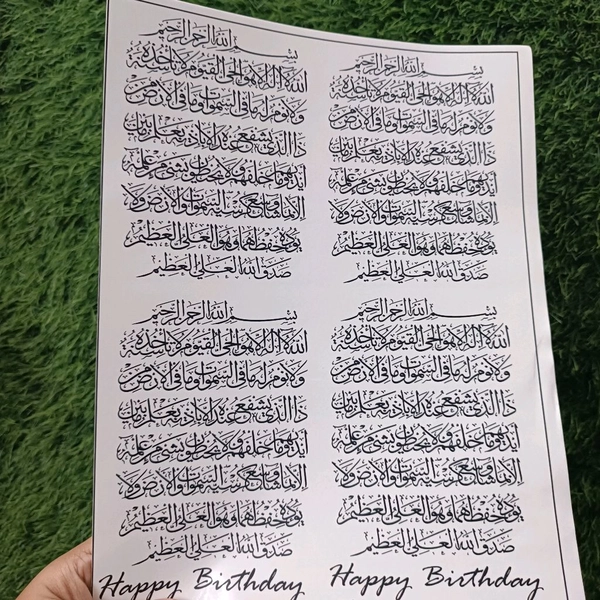 بسم الله الرحمن الرحيم
الله لا اله الا هو الحي القيوم لا تأخذه سنة
ولا نوم له ما في السموات وما في الارض من
ذا الذي يشفع عنده الا باذنه يعلم ما بين
أيديهم وما خلفهم ولا يحيطون بشيء من علمه
الا بما شاء وسع كرسيه السموات والارض ولا
يؤده حفظهما وهو العلي العظيم
صدق الله العلي العظيم
بسم الله الرحمن الرحيم
الله لا اله الا هو الحي القيوم لا تأخذه سنة
ولا نوم له ما في السموات وما في الارض من
ذا الذي يشفع عنده الا باذنه يعلم ما بين
أيديهم وما خلفهم ولا يحيطون بشيء من علمه
الا بما شاء وسع كرسيه السموات والارض ولا
يؤده حفظهما وهو العلي العظيم
صدق الله العلي العظيم
بسم الله الرحمن الرحيم
الله لا اله الا هو الحي القيوم لا تأخذه سنة
ولا نوم له ما في السموات وما في الارض من
ذا الذي يشفع عنده الا باذنه يعلم ما بين
أيديهم وما خلفهم ولا يحيطون بشيء من علمه
الا بما شاء وسع كرسيه السموات والارض ولا
يؤده حفظهما وهو العلي العظيم
صدق الله العلي العظيم
بسم الله الرحمن الرحيم
الله لا اله الا هو الحي القيوم لا تأخذه سنة
ولا نوم له ما في السموات وما في الارض من
ذا الذي يشفع عنده الا باذنه يعلم ما بين
أيديهم وما خلفهم ولا يحيطون بشيء من علمه
الا بما شاء وسع كرسيه السموات والارض ولا
يؤده حفظهما وهو العلي العظيم
صدق الله العلي العظيم
Happy Birthday
Happy Birthday